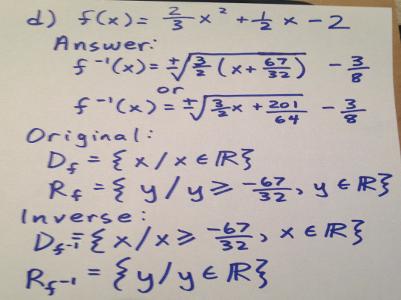 d) f(x) = 2/3 x² + 1/2 x - 2
Answer:
f⁻¹(x) = ±√(3/2 (x + 67/32)) - 3/8
or
f⁻¹(x) = ±√(3/2 x + 201/64) - 3/8
Original:
D_f = {x/x ∈ ℝ}
R_f = {y/y ≥ -67/32, y ∈ ℝ}
Inverse:
D_f⁻¹ = {x/x ≥ -67/32, x ∈ ℝ}
R_f⁻¹ = {y/y ∈ ℝ}